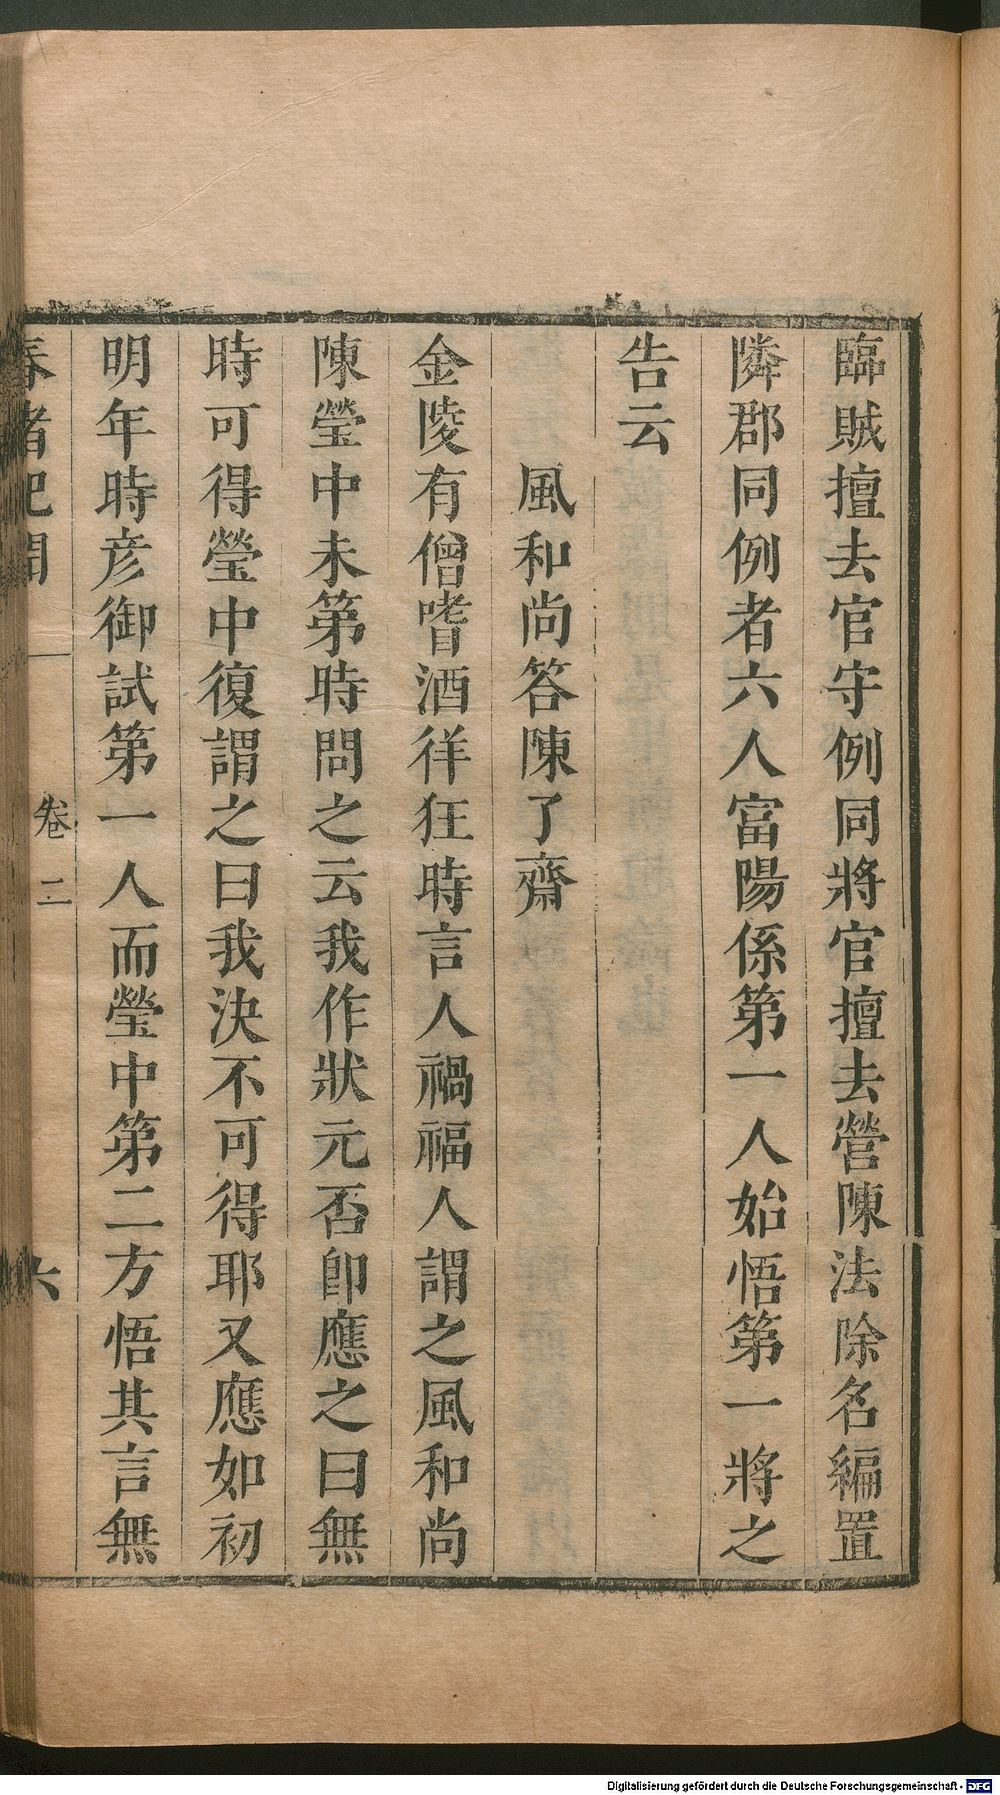 臨賊擅去官守例同將官擅去營陳法除名編置
隣郡同例者六人富陽係第一人始悟第一將之
告云
風和尚答陳了齋
金陵有僧嗜酒徉狂時言人禍福人謂之風和尚
陳瑩中未第時問之云我作狀元否卽應之曰無
時可得瑩中復謂之曰我決不可得耶又應如初
明年時彥御試第一人而瑩中第二方悟其言無
春渚紀聞
卷二
六
Digitalisierung gefördert durch die Deutsche Forschungsgemeinschaft - DFG